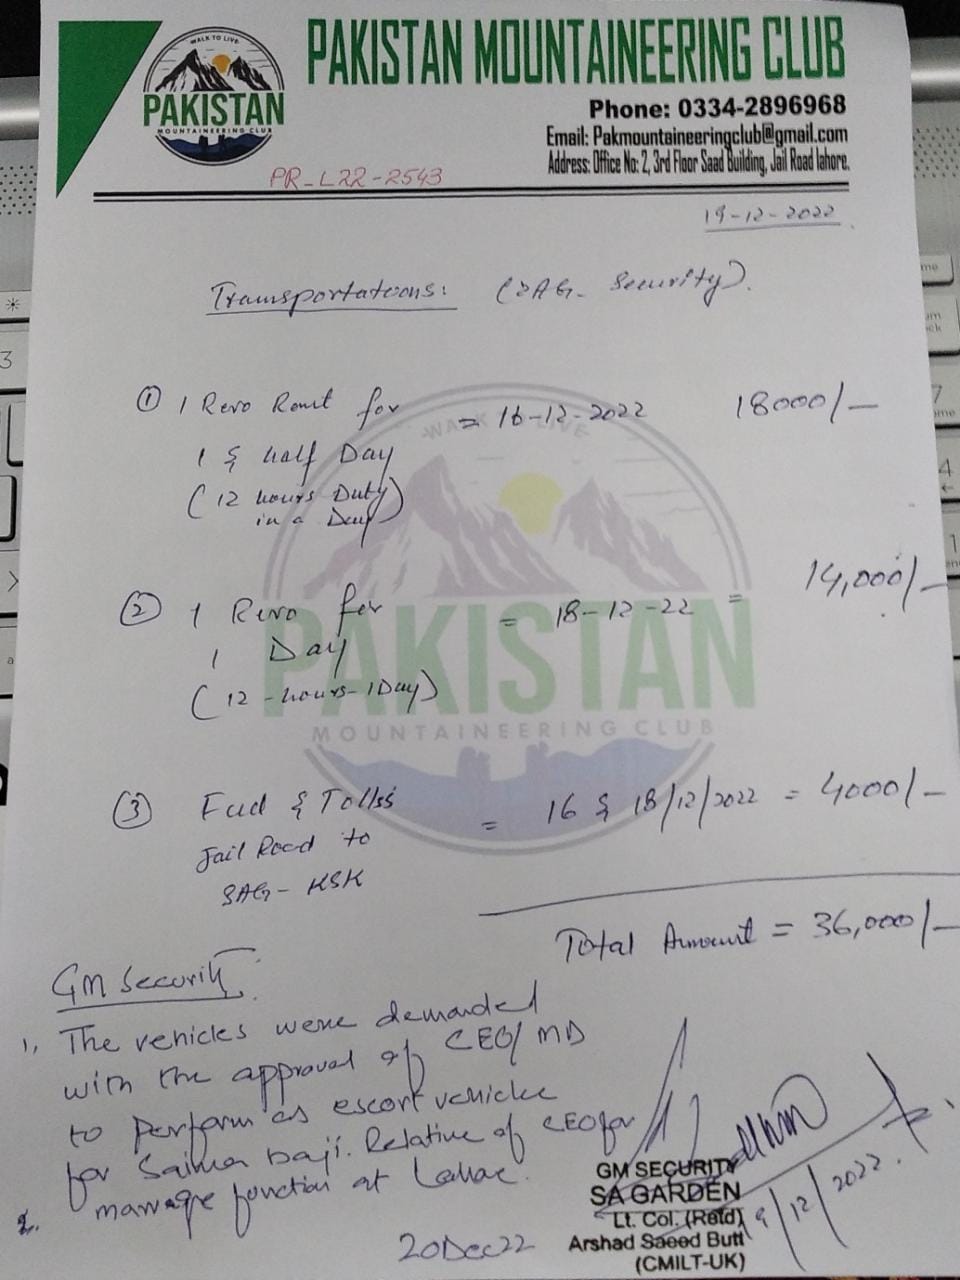 WALK TO LIVE
PAKISTAN
MOUNTAINEERING CLUB
PAKISTAN MOUNTAINEERING CLUB
Phone: 0334-2896968
Email: Pakmountaineeringclub@gmail.com
Address: Office No: 2, 3rd Floor Saad Building, Jail Road lahore.
PR-L22-2543
19-12-2022
Transportations: (SAG- Security).
① 1 Revo Rent for = 16-12-2022 18000/-
1 & half Day
(12 hours Duty
in a Day)
② 1 Revo for = 18-12-22 = 14,000/-
1 Day
(12-hours-1Day)
③ Fuel & Tolls = 16 & 18/12/2022 = 4000/-
Jail Road to
SAG- KSK
Total Amount = 36,000/-
WALK TO LIVE
PAKISTAN
MOUNTAINEERING CLUB
GM Security
1, The vehicles were demanded
with the approval of CEO/MD
to perform as escort vehicles
for Saima baji. Relative of CEO for
marriage function at Lahore.
2.
20Dec22
GM SECURITY
SA GARDEN
Lt. Col. (Retd)
Arshad Saeed Butt
(CMILT-UK)
19/12/2022.